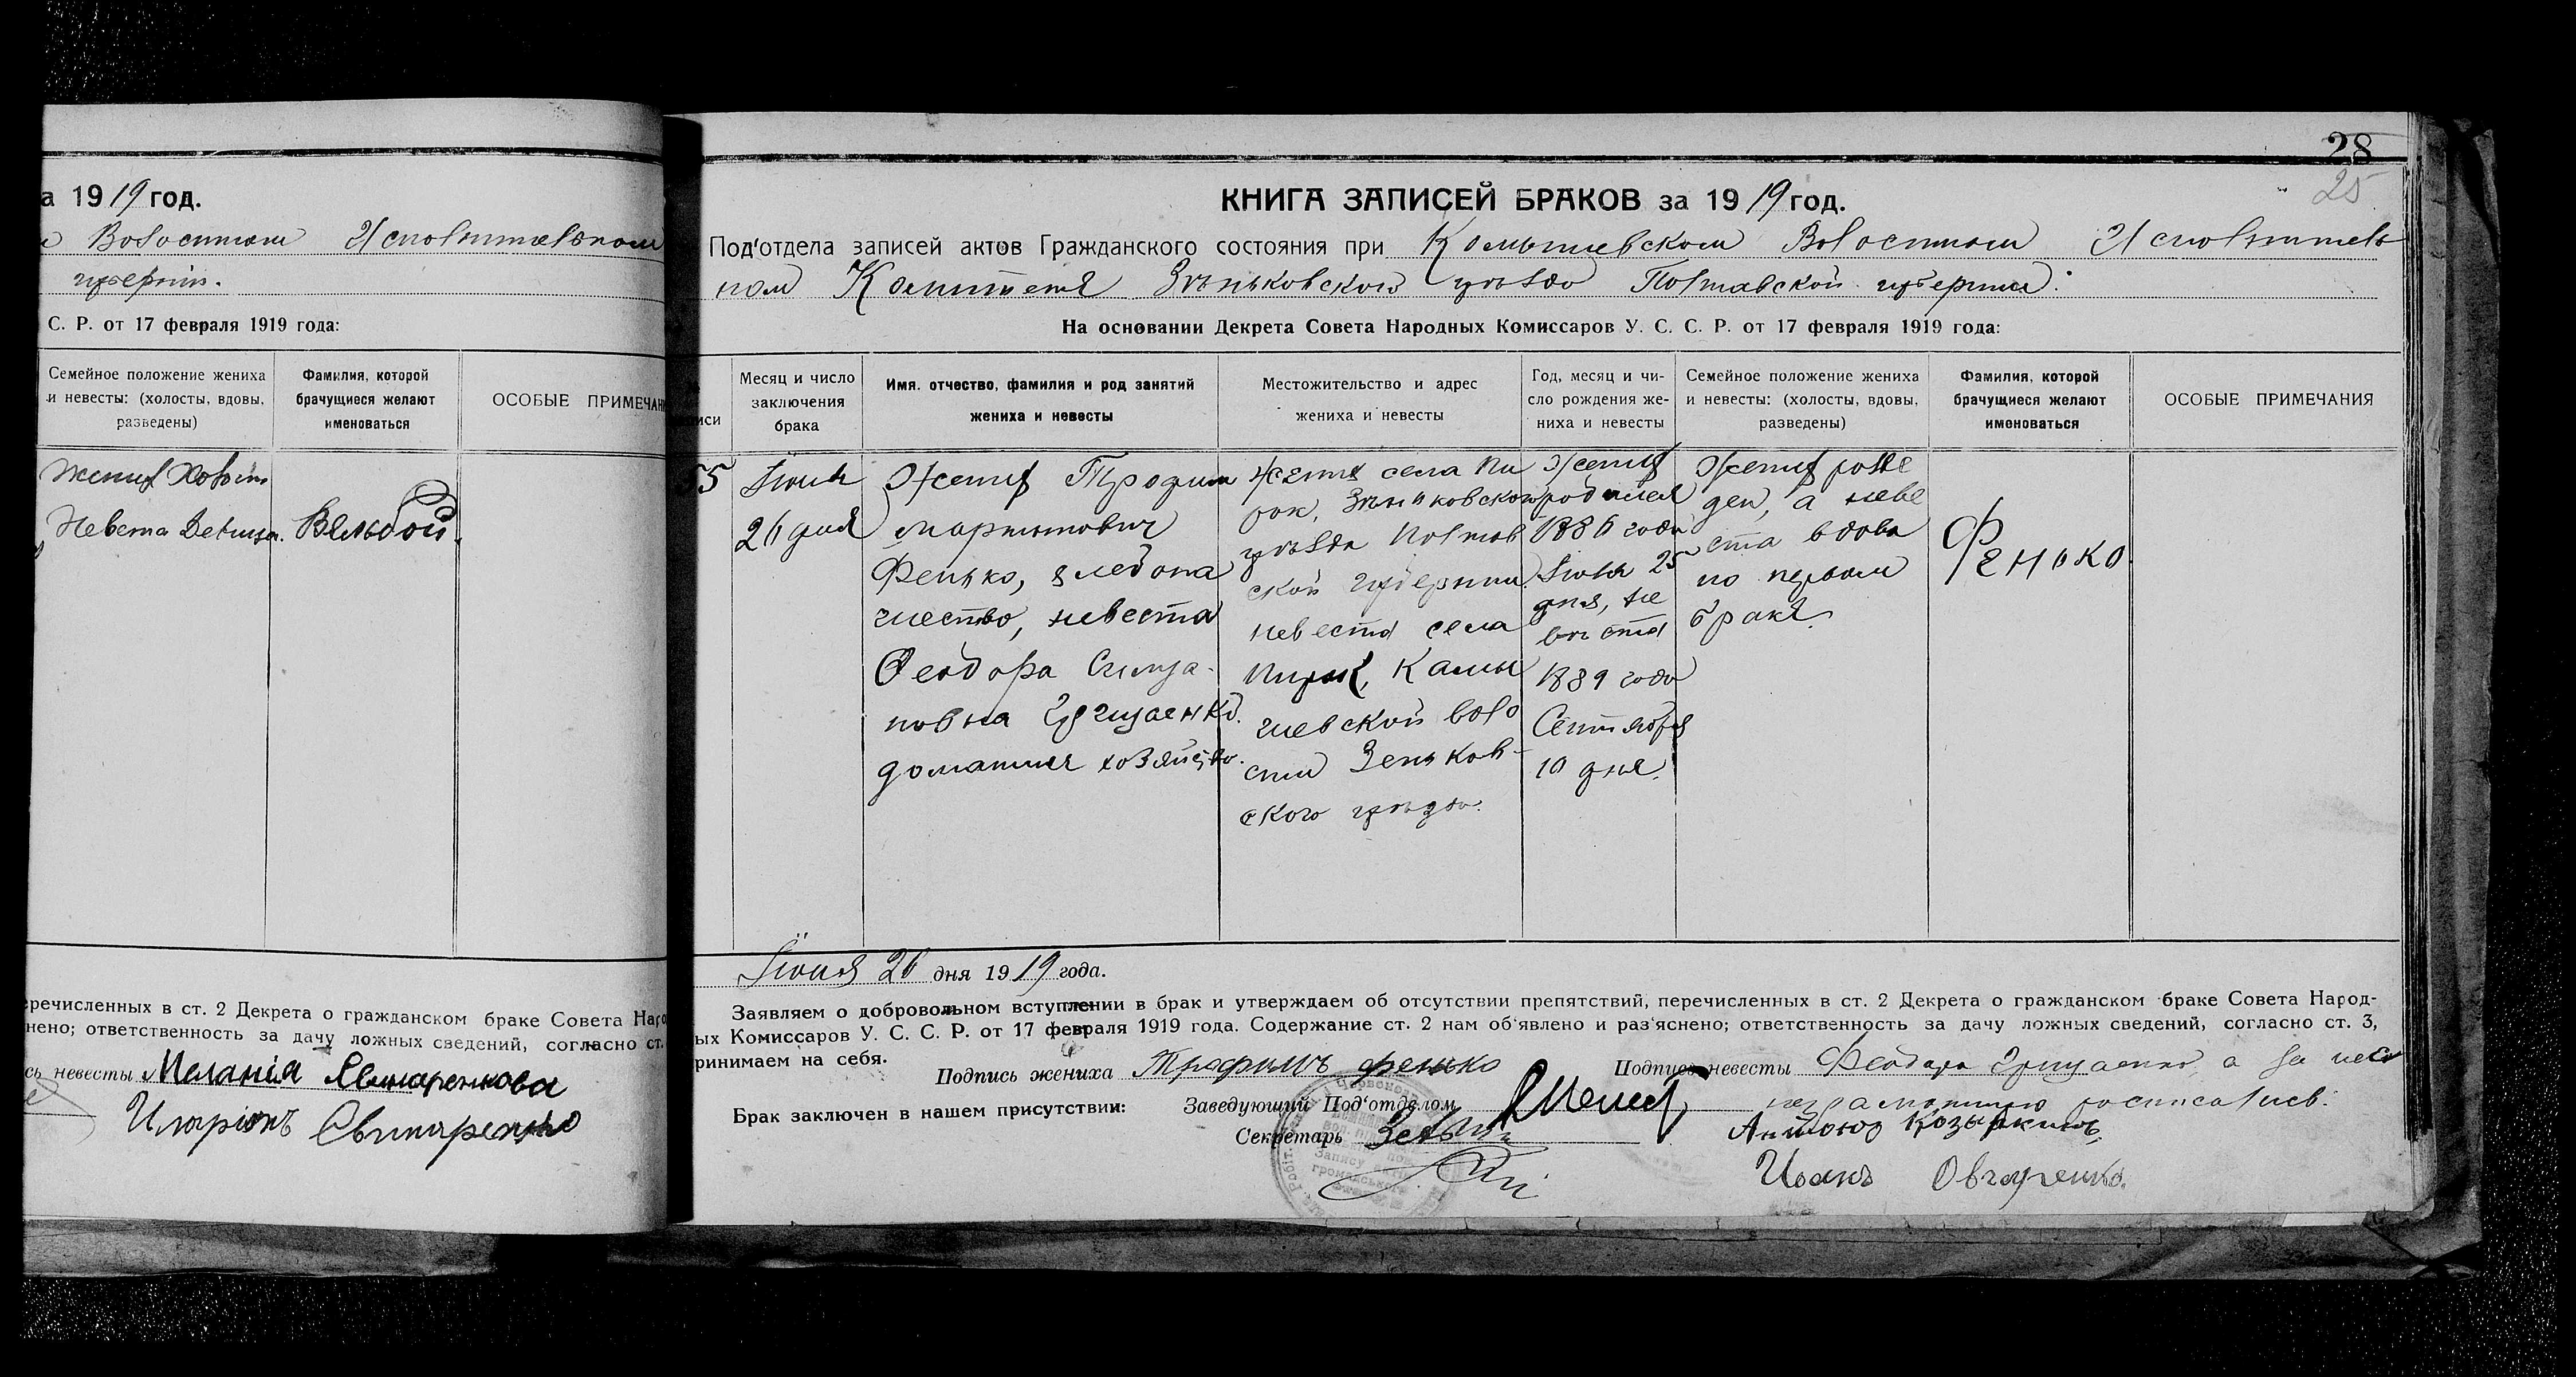 а 1919 год.
Волостном Исполнительном
губернии.
С. Р. от 17 февраля 1919 года:
Семейное положение жениха и невесты: (холосты, вдовы, разведены)
Фамилия, которой брачущиеся желают именоваться
ОСОБЫЕ ПРИМЕЧАН
Жених Холост
Невеста Девица. Вельбой.
еречисленных в ст. 2 Декрета о гражданском браке Совета Наро
нено; ответственность за дачу ложных сведений, согласно ст.
сь невесты Меланія
Иларіонъ Свинаренко
28
25
КНИГА ЗАПИСЕЙ БРАКОВ за 1919 год.
Под'отдела записей актов Гражданского состояния при Комышевском Волостном Исполнитель
ном Комитетѣ Зѣньковского уѣзда Полтавской губернии.
На основании Декрета Совета Народных Комиссаров У. С. С. Р. от 17 февраля 1919 года:
иси
Месяц и число заключения брака
Имя, отчество, фамилия и род занятий жениха и невесты
Местожительство и адрес жениха и невесты
Год, месяц и число рождения жениха и невесты
Семейное положение жениха и невесты: (холосты, вдовы, разведены)
Фамилия, которой брачущиеся желают именоваться
ОСОБЫЕ ПРИМЕЧАНИЯ
55
Іюня
26 дня
Жених Трофим
Мартынович
Фенько, хлебопа
шество, невеста
Феодора
повна Грицаенко.
домашнее хозяйство.
Жених села Пи
рок, Зѣньковского
уѣзда Полтав
ской губернии
невеста села
Пирок, Камы
шевской воло
сти Зеньков-
ского уѣзда.
Жених
родился
1886 года
25
дня, не
вѣста
1889 года
Сентября
10 дня.
Жених разве
ден, а неве
ста вдова
по первом
браке.
Фенько.
Іюня 26 дня 1919 года.
Заявляем о добровольном вступлении в брак и утверждаем об отсутствии препятствий, перечисленных в ст. 2 Декрета о гражданском браке Совета Народ-
ых Комиссаров У. С. С. Р. от 17 февраля 1919 года. Содержание ст. 2 нам об'явлено и раз'яснено; ответственность за дачу ложных сведений, согласно ст. 3,
ринимаем на себя.
Подпись жениха Трофимъ Фенько
Подпись невесты Феодора Грицаенко, а за нею
неграмотную росписались:
Брак заключен в нашем присутствии:
Заведующий Под'отделом
Секретарь
Козыркинъ
Иванъ Овчаренко.